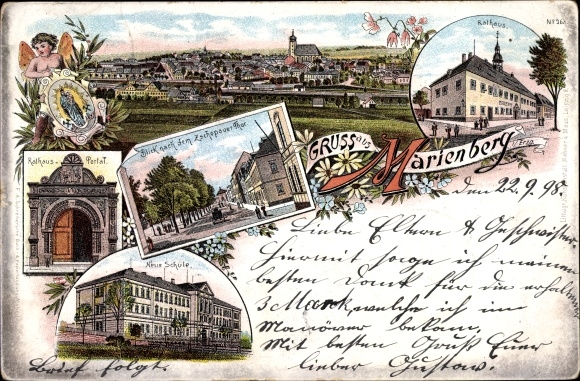 No 26
Rathaus.
Blick nach dem Zschopauer Thor.
GRUSS aus
Marienberg
Erzg.
Rathaus-Portal.
Neue Schule
den 22.9.98.
Liebe Eltern & Geschwister.
Hiermit sage ich meinen
besten Dank für die erhaltenen
3 Mark welche ich im
Manöwer bekam.
Mit besten Gruß Euer
lieber Gustav.
Brief folgt.